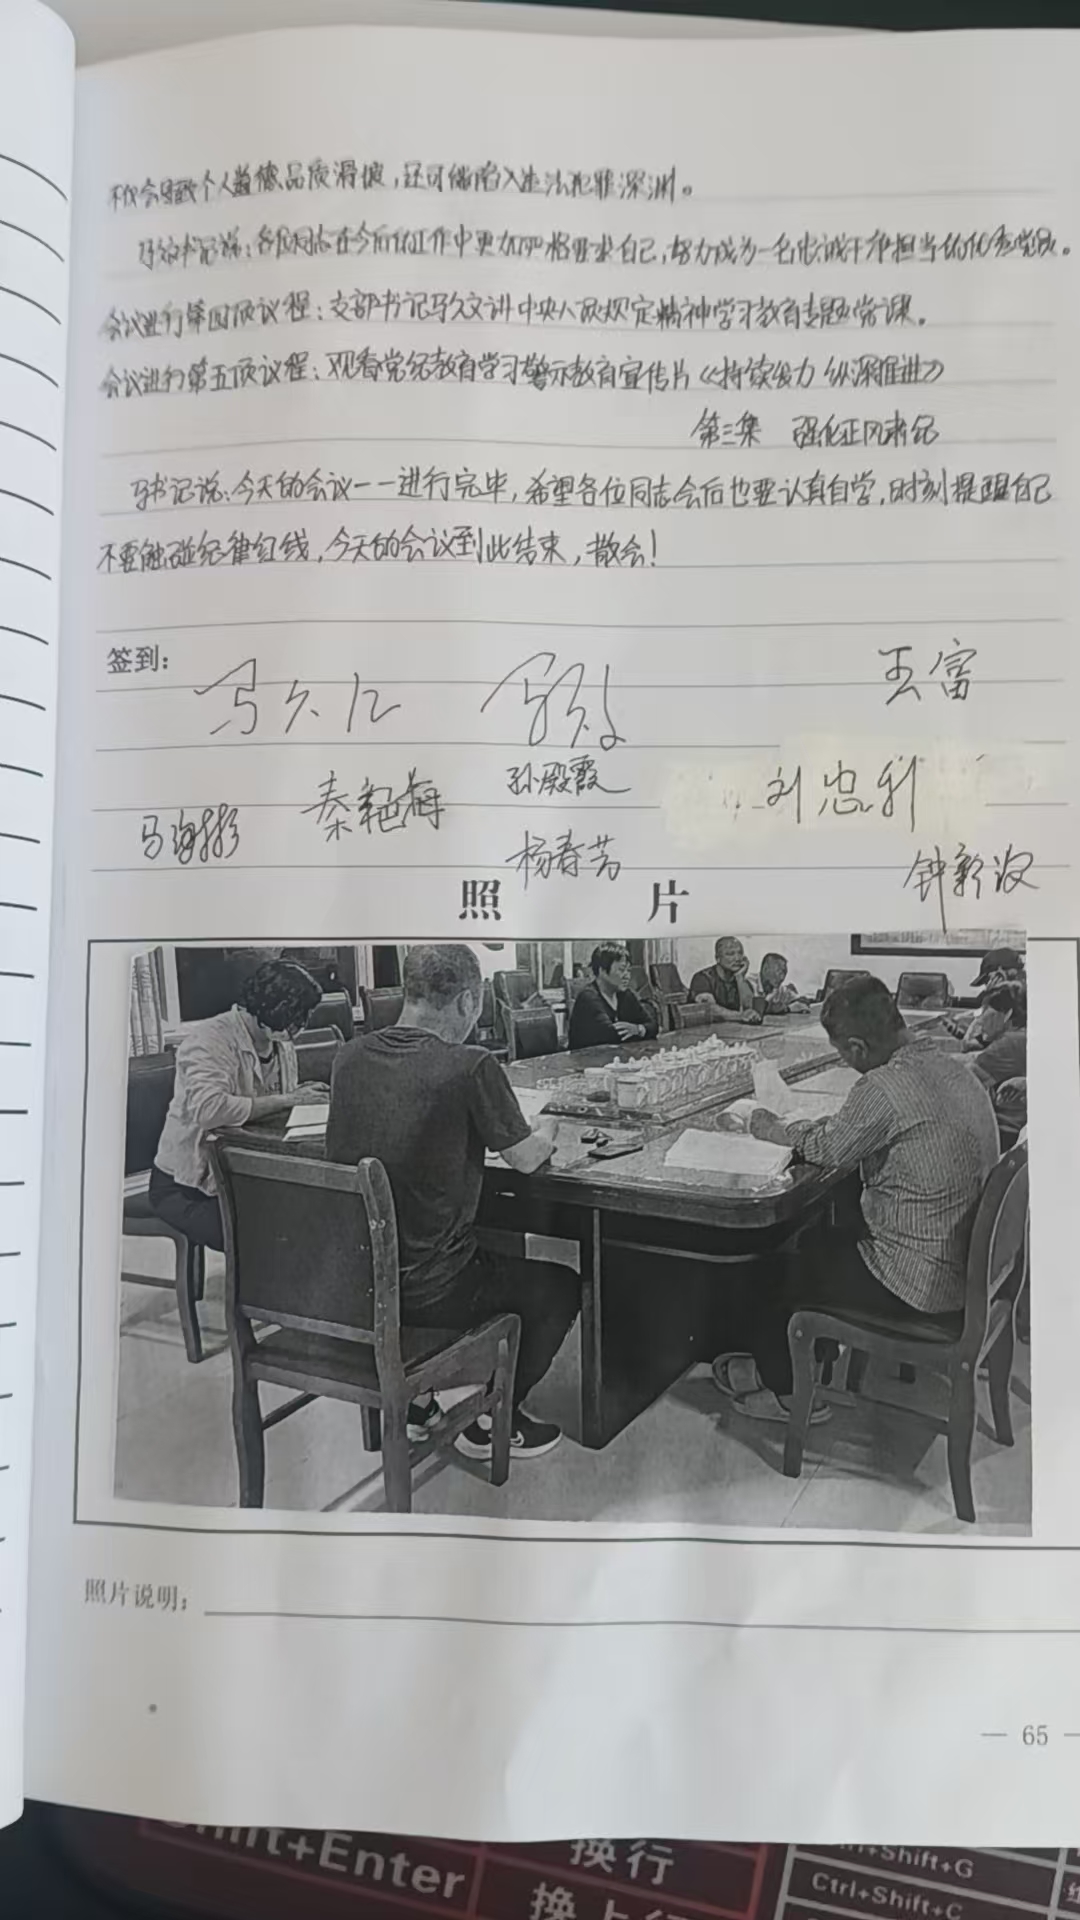 不仅会导致个人道德品质滑坡，还可能陷入违法犯罪深渊。
马效书记说：各位同志在今后的工作中更加严格要求自己，努力成为一名忠诚干净担当的优秀党员。
会议进行第四项议程：支部书记马久文讲中央八项规定精神学习教育专题党课。
会议进行第五项议程：观看党纪教育学习警示教育宣传片《持续发力 纵深推进》
第三集 强化正风肃纪
马书记说：今天的会议一一进行完毕，希望各位同志会后也要认真自学，时刻提醒自己
不要触碰纪律红线，今天的会议到此结束，散会！
签到：
马久 王富
秦艳梅 孙殿霞 刘忠利
马海彬 杨春芳 钟新
照 片
照片说明：
— 65 —
Shift+Enter 换行 Shift+G
换上行 Ctrl+Shift+C